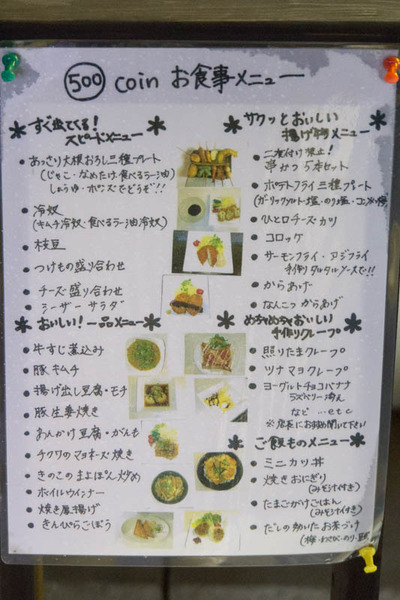 500 coin お食事メニュー
*すぐ出てくる! スピードメニュー*
・あっさり大根おろし三種プレート
(じゃこ・なめたけ・食べるラー油)
しょうゆ・ポン酢でどうぞ!!
・冷奴
(キムチ冷奴・食べるラー油冷奴)
・枝豆
・つけもの盛り合わせ
・チーズ盛り合わせ
・シーザーサラダ
*おいしい!一品メニュー*
・牛すじ煮込み
・豚キムチ
・揚げ出し豆腐・モチ
・豚生姜焼き
・あんかけ豆腐・がんも
・チクワのマヨネーズ焼き
・きのこのまよぽん炒め
・ホイルウィンナー
・焼き厚揚げ
・きんぴらごぼう
*サクッとおいしい 揚げ物メニュー*
・二度付け禁止!
串カツ 5本セット
・ポテトフライ三種プレート
・ひと口チーズ・カツ
・コロッケ
・サーモンフライ・アジフライ
手作りタルタルソースで!!
・からあげ
・なんこつからあげ
*めちゃめちゃおいしい 手作りクレープ*
・照りたまクレープ
・ツナマヨクレープ
・ヨーグルトチョコバナナ
など…etc
※店長にお好み聞いて下さい
*ご飯ものメニュー*
・ミニカツ丼
・焼きおにぎり
(みそ汁付き)
・たまごかけごはん
(みそ汁付き)
・だしの効いたお茶づけ
(梅・わさび・のり・鮭)